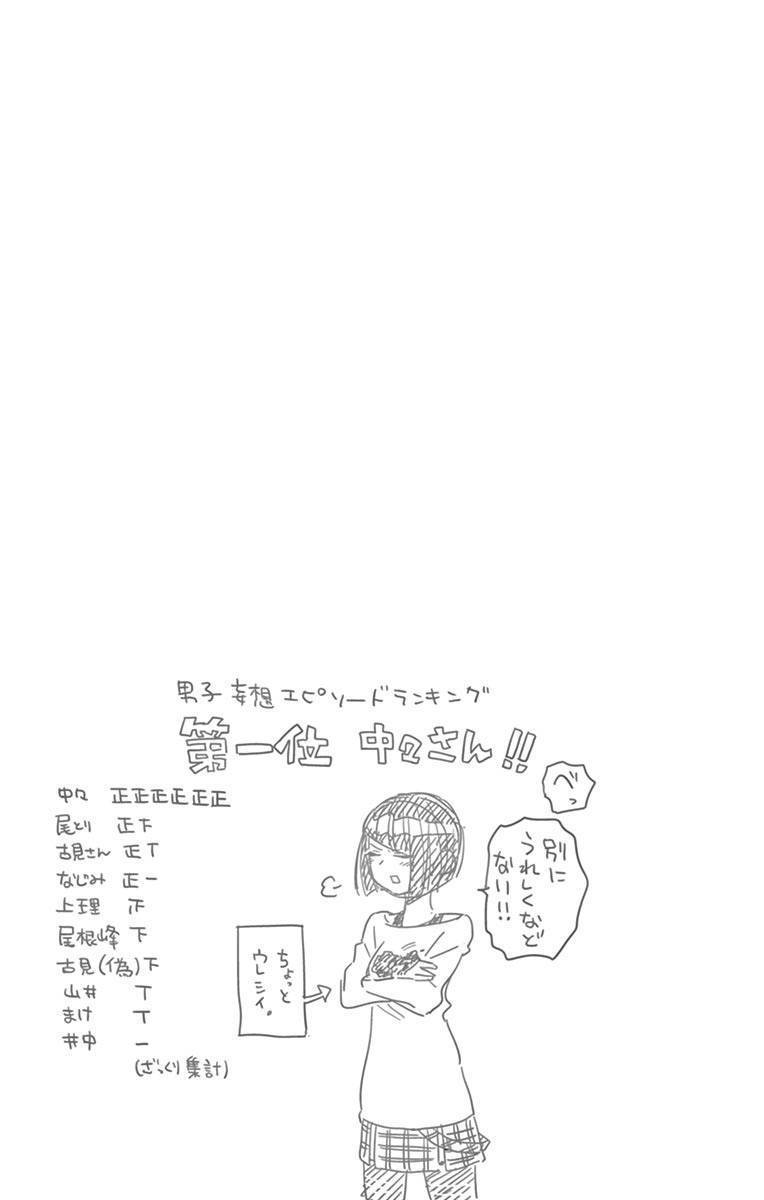 男子妄想エピソードランキング
第一位 中々さん!!
べっ
別に
うれしくなど
ない!!
中々 正正正正正正
尾とり 正下
古見さん 正丅
なじみ 正一
上理 𤴓
尾根峰 下
古見(偽) 下
山井 丅
まけ 丅
井中 一
(ざっくり集計)
ちょっと
ウレシイ。